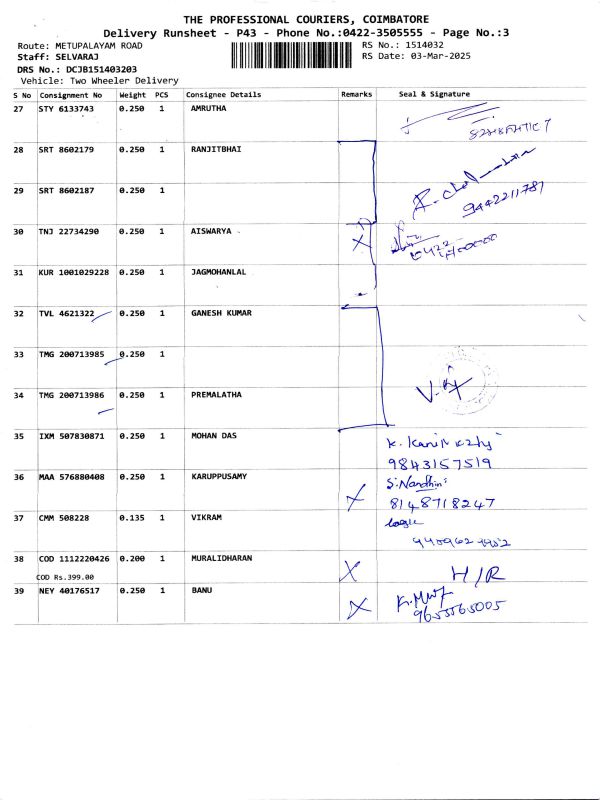 THE PROFESSIONAL COURIERS, COIMBATORE
Delivery Runsheet - P43 - Phone No.:0422-3505555 - Page No.:3
Route: METUPALAYAM ROAD RS No.: 1514032
Staff: SELVARAJ RS Date: 03-Mar-2025
DRS No.: DCJB151403203
Vehicle: Two Wheeler Delivery
S No Consignment No Weight PCS Consignee Details Remarks Seal & Signature
27 STY 6133743 0.250 1 AMRUTHA
28 SRT 8602179 0.250 1 RANJITBHAI
29 SRT 8602187 0.250 1
9442211781
30 TNJ 22734290 0.250 1 AISWARYA . X
31 KUR 1001029228 0.250 1 JAGMOHANLAL
32 TVL 4621322 0.250 1 GANESH KUMAR
33 TMG 200713985 0.250 1
34 TMG 200713986 0.250 1 PREMALATHA
35 IXM 507830871 0.250 1 MOHAN DAS
9843157519
36 MAA 576880408 0.250 1 KARUPPUSAMY X S. Nandhini
8148718247
37 CMM 508228 0.135 1 VIKRAM
38 COD 1112220426 0.200 1 MURALIDHARAN X H/R
COD Rs.399.00
39 NEY 40176517 0.250 1 BANU X
9655565005